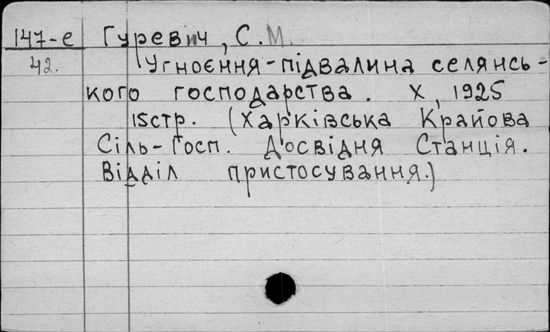 147-е Гуревич, С.М.
42. Угноєння-підвалина селянсь-
кого господарства. Х, 1925
15стр. (Харківська Крайова
Сіль-Госп. Досвідня Станція.
Відділ пристосування.)